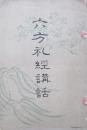 六方礼經講話